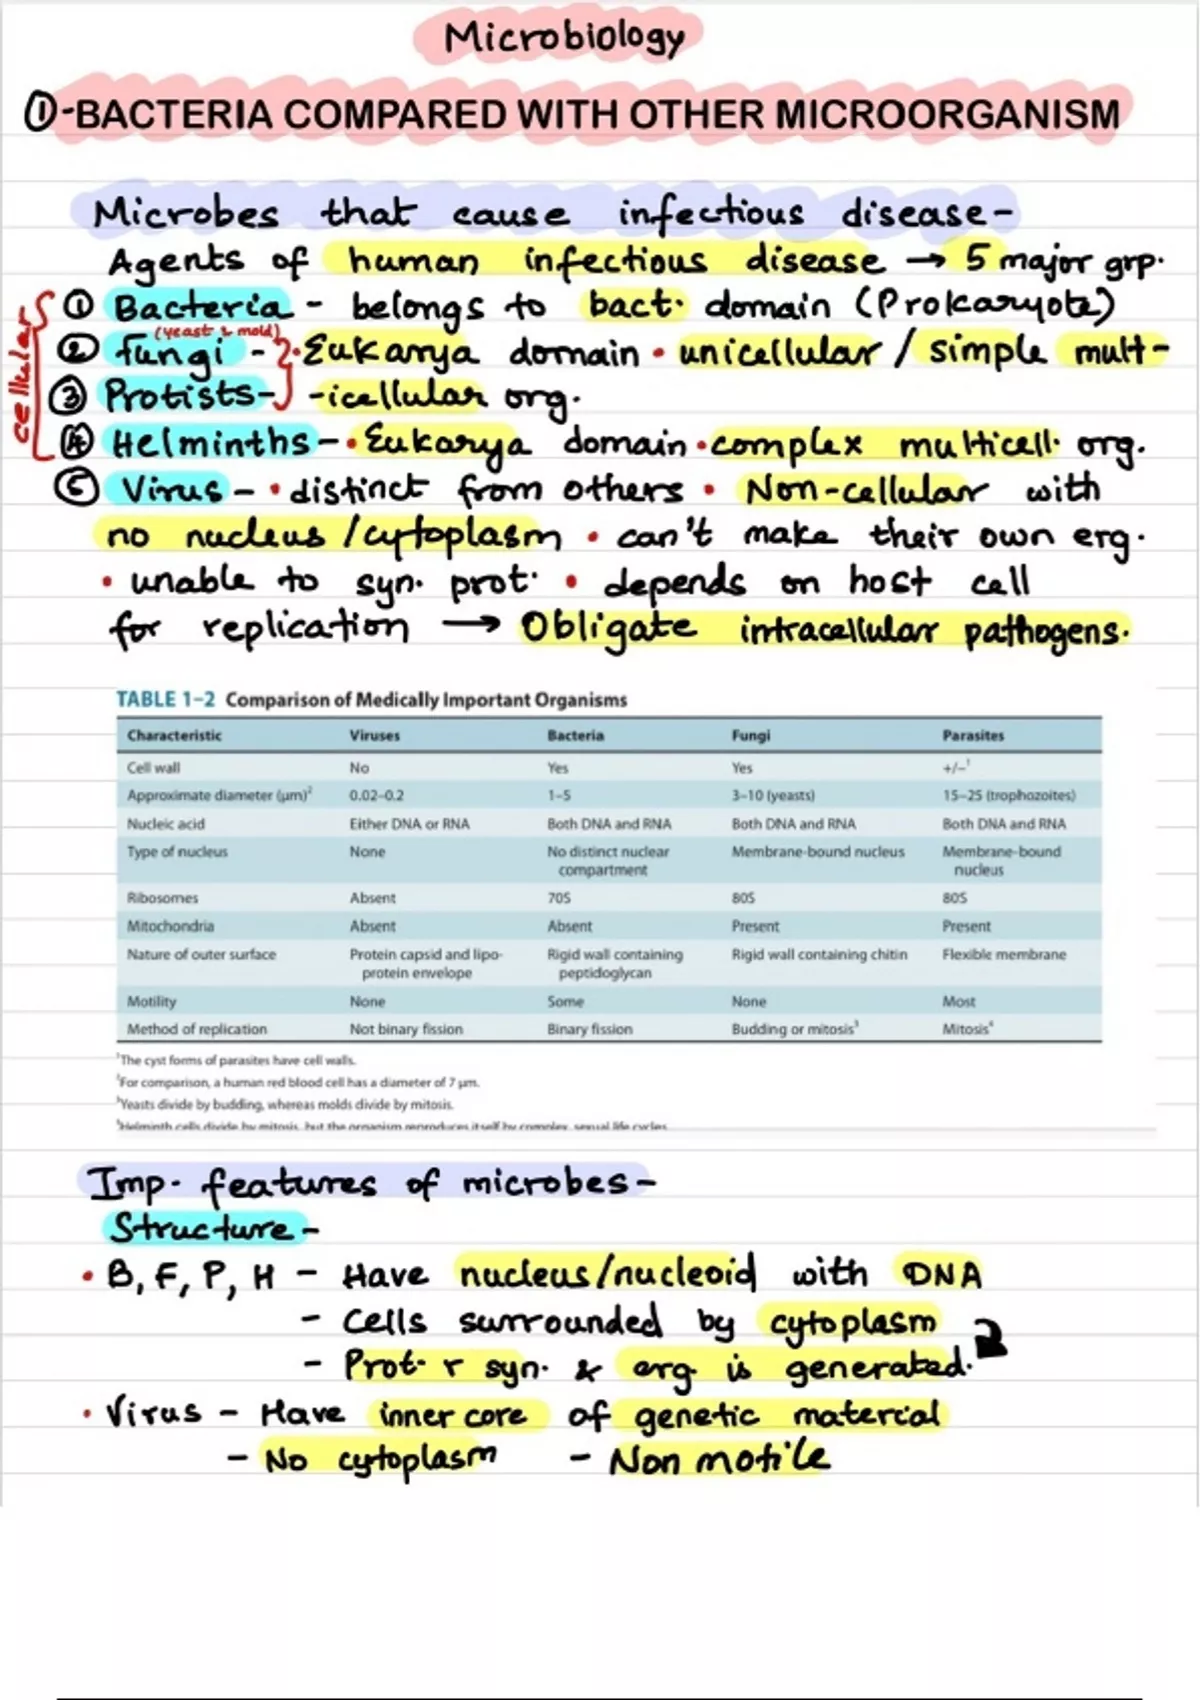 Microbiology
①-BACTERIA COMPARED WITH OTHER MICROORGANISM
Microbes that cause infectious disease-
Agents of human infectious disease → 5 major grp.
cellular
① Bacteria - belongs to bact. domain (Prokaryote)
(yeast & mold)
② fungi - • Eukarya domain • unicellular / simple mult-
③ Protists- -icellular org.
④ Helminths - • Eukarya domain • complex multicell. org.
⑤ Virus - • distinct from others • Non-cellular with
no nucleus / cytoplasm • can't make their own erg.
• unable to syn. prot. • depends on host cell
for replication → Obligate intracellular pathogens.
TABLE 1-2 Comparison of Medically Important Organisms
Characteristic Viruses Bacteria Fungi Parasites
Cell wall No Yes Yes +/-¹
Approximate diameter (μm)² 0.02-0.2 1-5 3-10 (yeasts) 15-25 (trophozoites)
Nucleic acid Either DNA or RNA Both DNA and RNA Both DNA and RNA Both DNA and RNA
Type of nucleus None No distinct nuclear Membrane-bound nucleus Membrane-bound
compartment nucleus
Ribosomes Absent 70S 80S 80S
Mitochondria Absent Absent Present Present
Nature of outer surface Protein capsid and lipo- Rigid wall containing Rigid wall containing chitin Flexible membrane
protein envelope peptidoglycan
Motility None Some None Most
Method of replication Not binary fission Binary fission Budding or mitosis³ Mitosis⁴
¹The cyst forms of parasites have cell walls.
²For comparison, a human red blood cell has a diameter of 7 μm.
³Yeasts divide by budding, whereas molds divide by mitosis.
Helminth cells divide by mitosis, but the organism reproduces itself by complex, sexual life cycles.
Imp. features of microbes-
Structure-
• B, F, P, H - Have nucleus/nucleoid with DNA
- Cells surrounded by cytoplasm
- Prot. r syn. & erg. is generated.
• Virus - Have inner core of genetic material
- No cytoplasm - Non motile